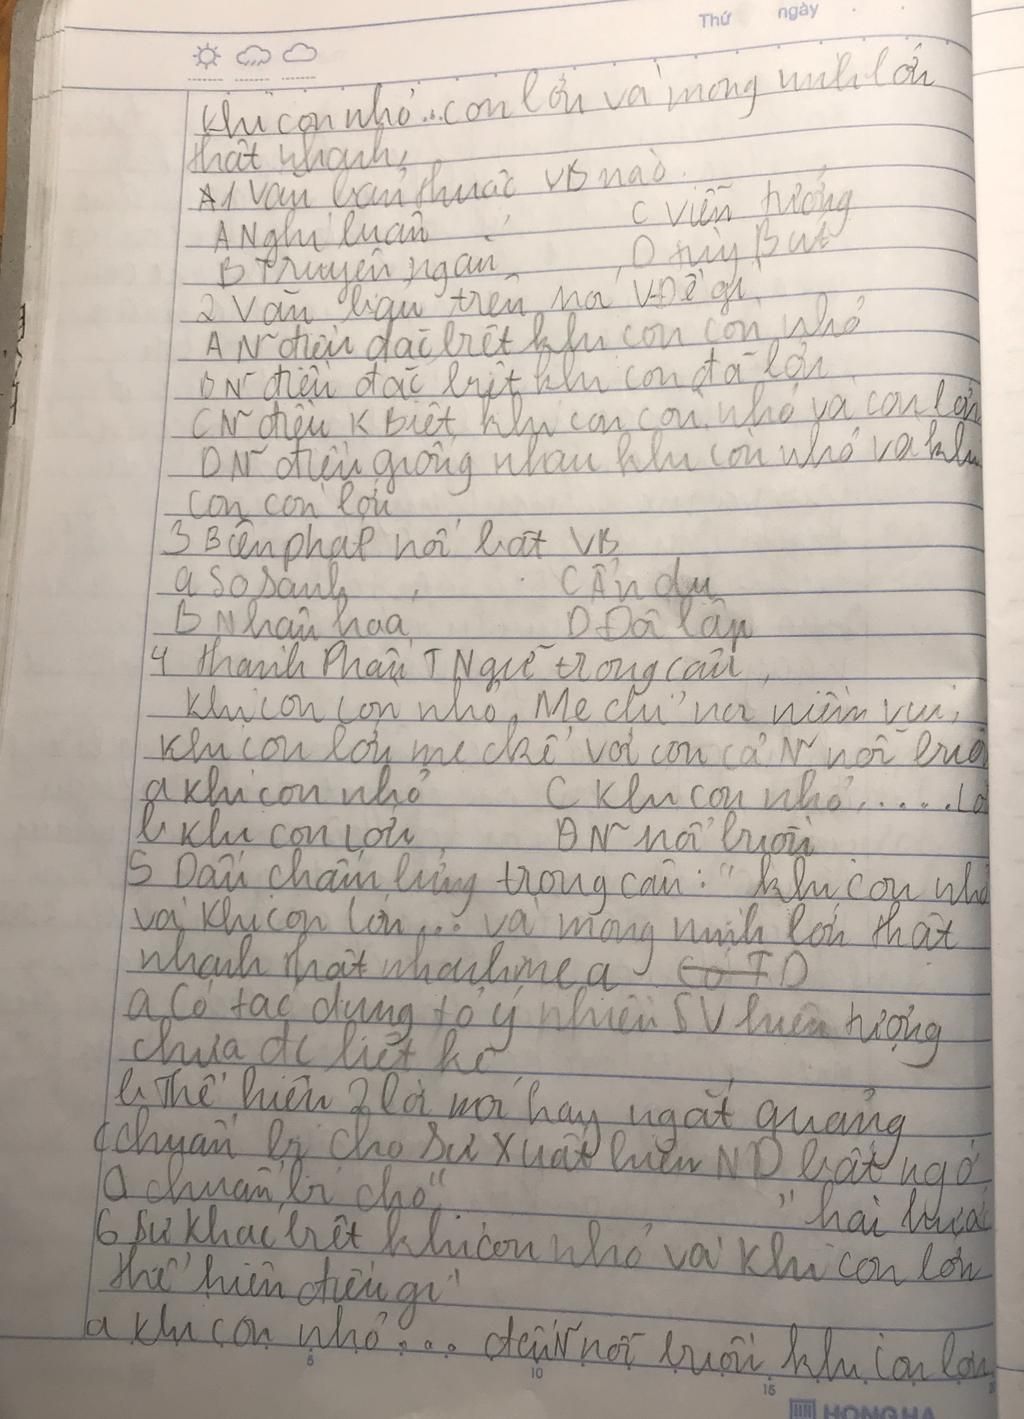 Thứ ngày
khi con nhỏ...con lớn và mong mình lớn
thật nhanh,
A1 Văn bản thuộc VB nào.
A Nghị luận C Viễn tưởng
B Truyện ngắn D tùy Bút
2 Văn bản trên nói VĐề gì
A N~ điều đặc biệt khi con còn nhỏ
B N~ điều đặc biệt khi con đã lớn
C N~ điều K Biệt khi con còn nhỏ và con lớn
D N~ điều giống nhau khi còn nhỏ và khi
con còn lớn
3 Biện pháp nổi bật VB
a So sánh C Ẩn dụ
B Nhân hoá D Đối lập
4 thành Phần TNgữ trong câu
khi con còn nhỏ, Mẹ chỉ nói niềm vui,
khi con lớn mẹ kể với con cả N~ nỗi buồ
a khi con nhỏ C khi con nhỏ.....lớ
b khi con lớn D N~ nỗi buồn
5 Dấu chấm lửng trong câu: "khi con nhỏ
và khi con lớn... và mong mình lớn thật
nhanh thật nhanh mẹ a
a Có tác dụng tỏ ý nhiều SV hiện tượng
chưa đc liệt kê
b Thể hiện 2 lời nói hay ngắt quãng
C chuẩn bị cho sự xuất hiện ND bất ngờ
D chuẩn bị cho " " hài hước
6 Sự khác biệt khi con nhỏ và khi con lớn
thể hiện điều gì
a khi con nhỏ... đến N~ nỗi buồn khi con lớn
5 10 15
HONG HA